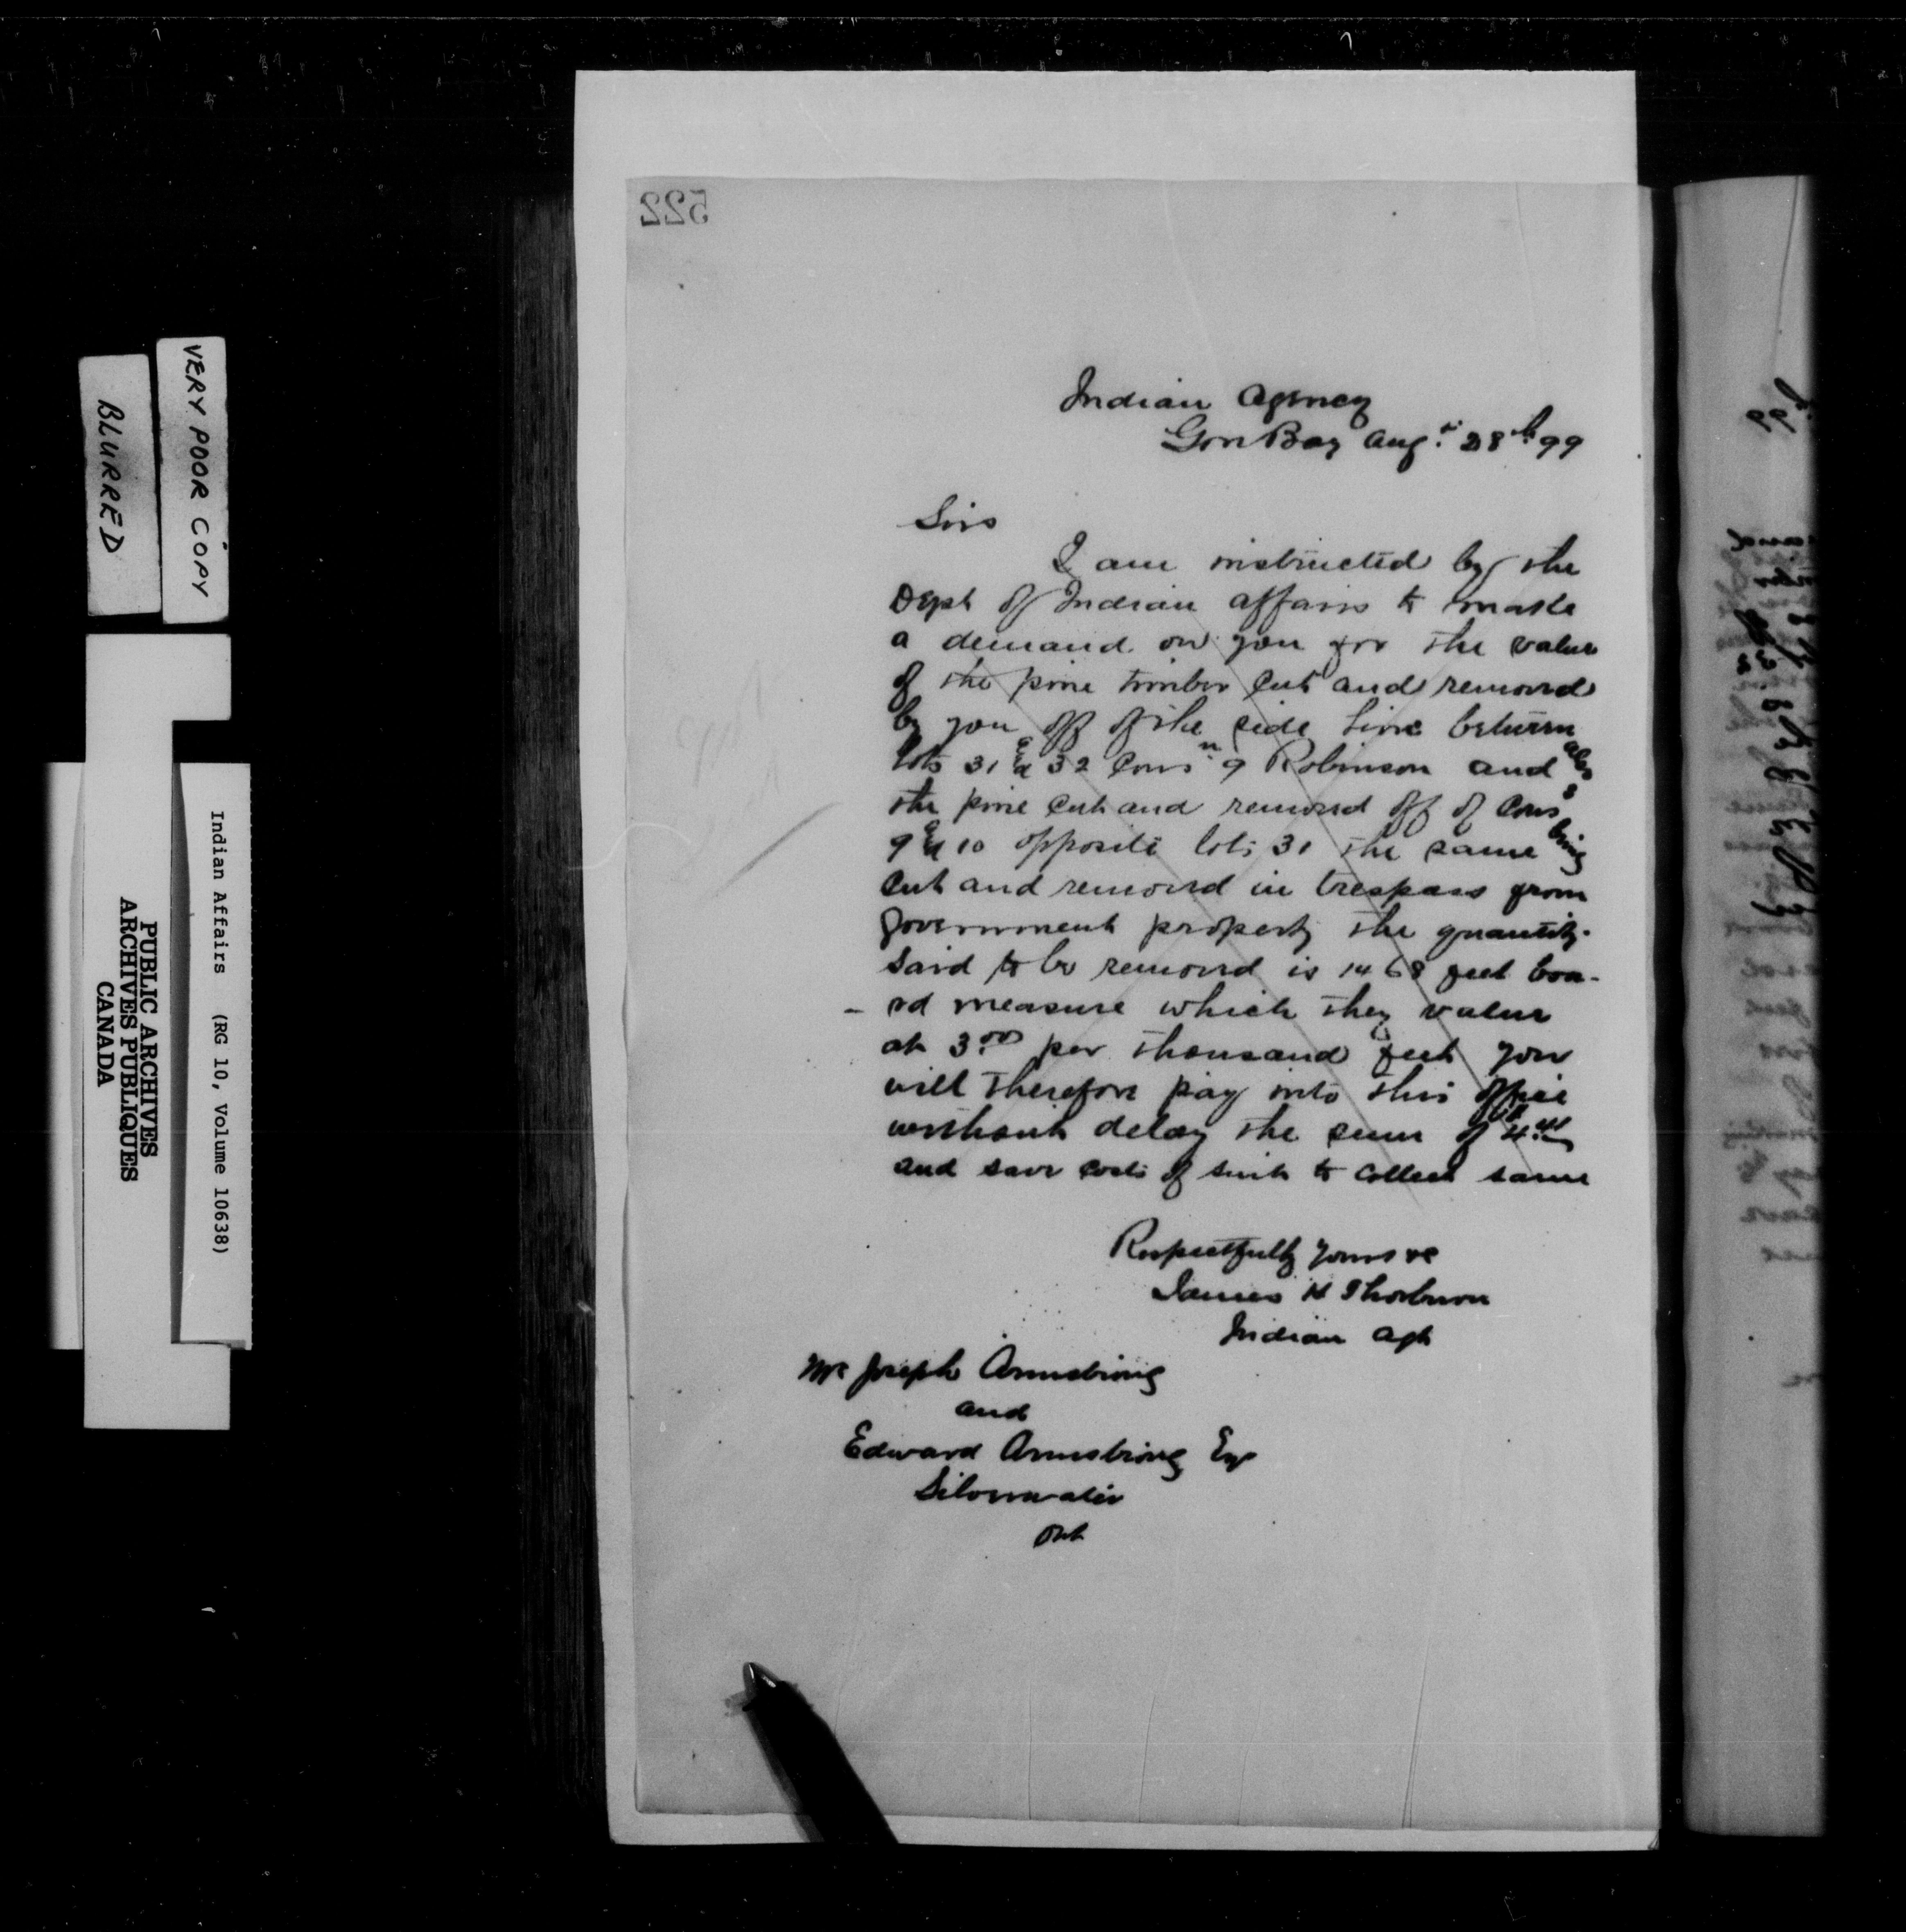 522
Indian Agency
Gore Bay Augt. 28th 99
Sirs
I am instructed by the
Dept of Indian affairs to make
a demand on you for the value
of the pine timber cut and removed
by you off of the side line between
lots 31 & 32 Conn 9 Robinson and also
the pine cut and removed off of Cons 8
9 & 10 opposite lots 31 the same being
cut and removed in trespass from
Government property the quantity
said to be removed is 1468 feet boa-
-rd measure which they value
at 3.00 per thousand feet you
will therefore pay into this office
without delay the sum of
and save costs of suit to collect same
Respectfully yours &c
James H Thorburn
Indian Agt
Mr Joseph Armstrong
and
Edward Armstrong Esq
Silverwater
Ont
VERY POOR COPY
BLURRED
Indian Affairs (RG 10, Volume 10638)
PUBLIC ARCHIVES
ARCHIVES PUBLIQUES
CANADA